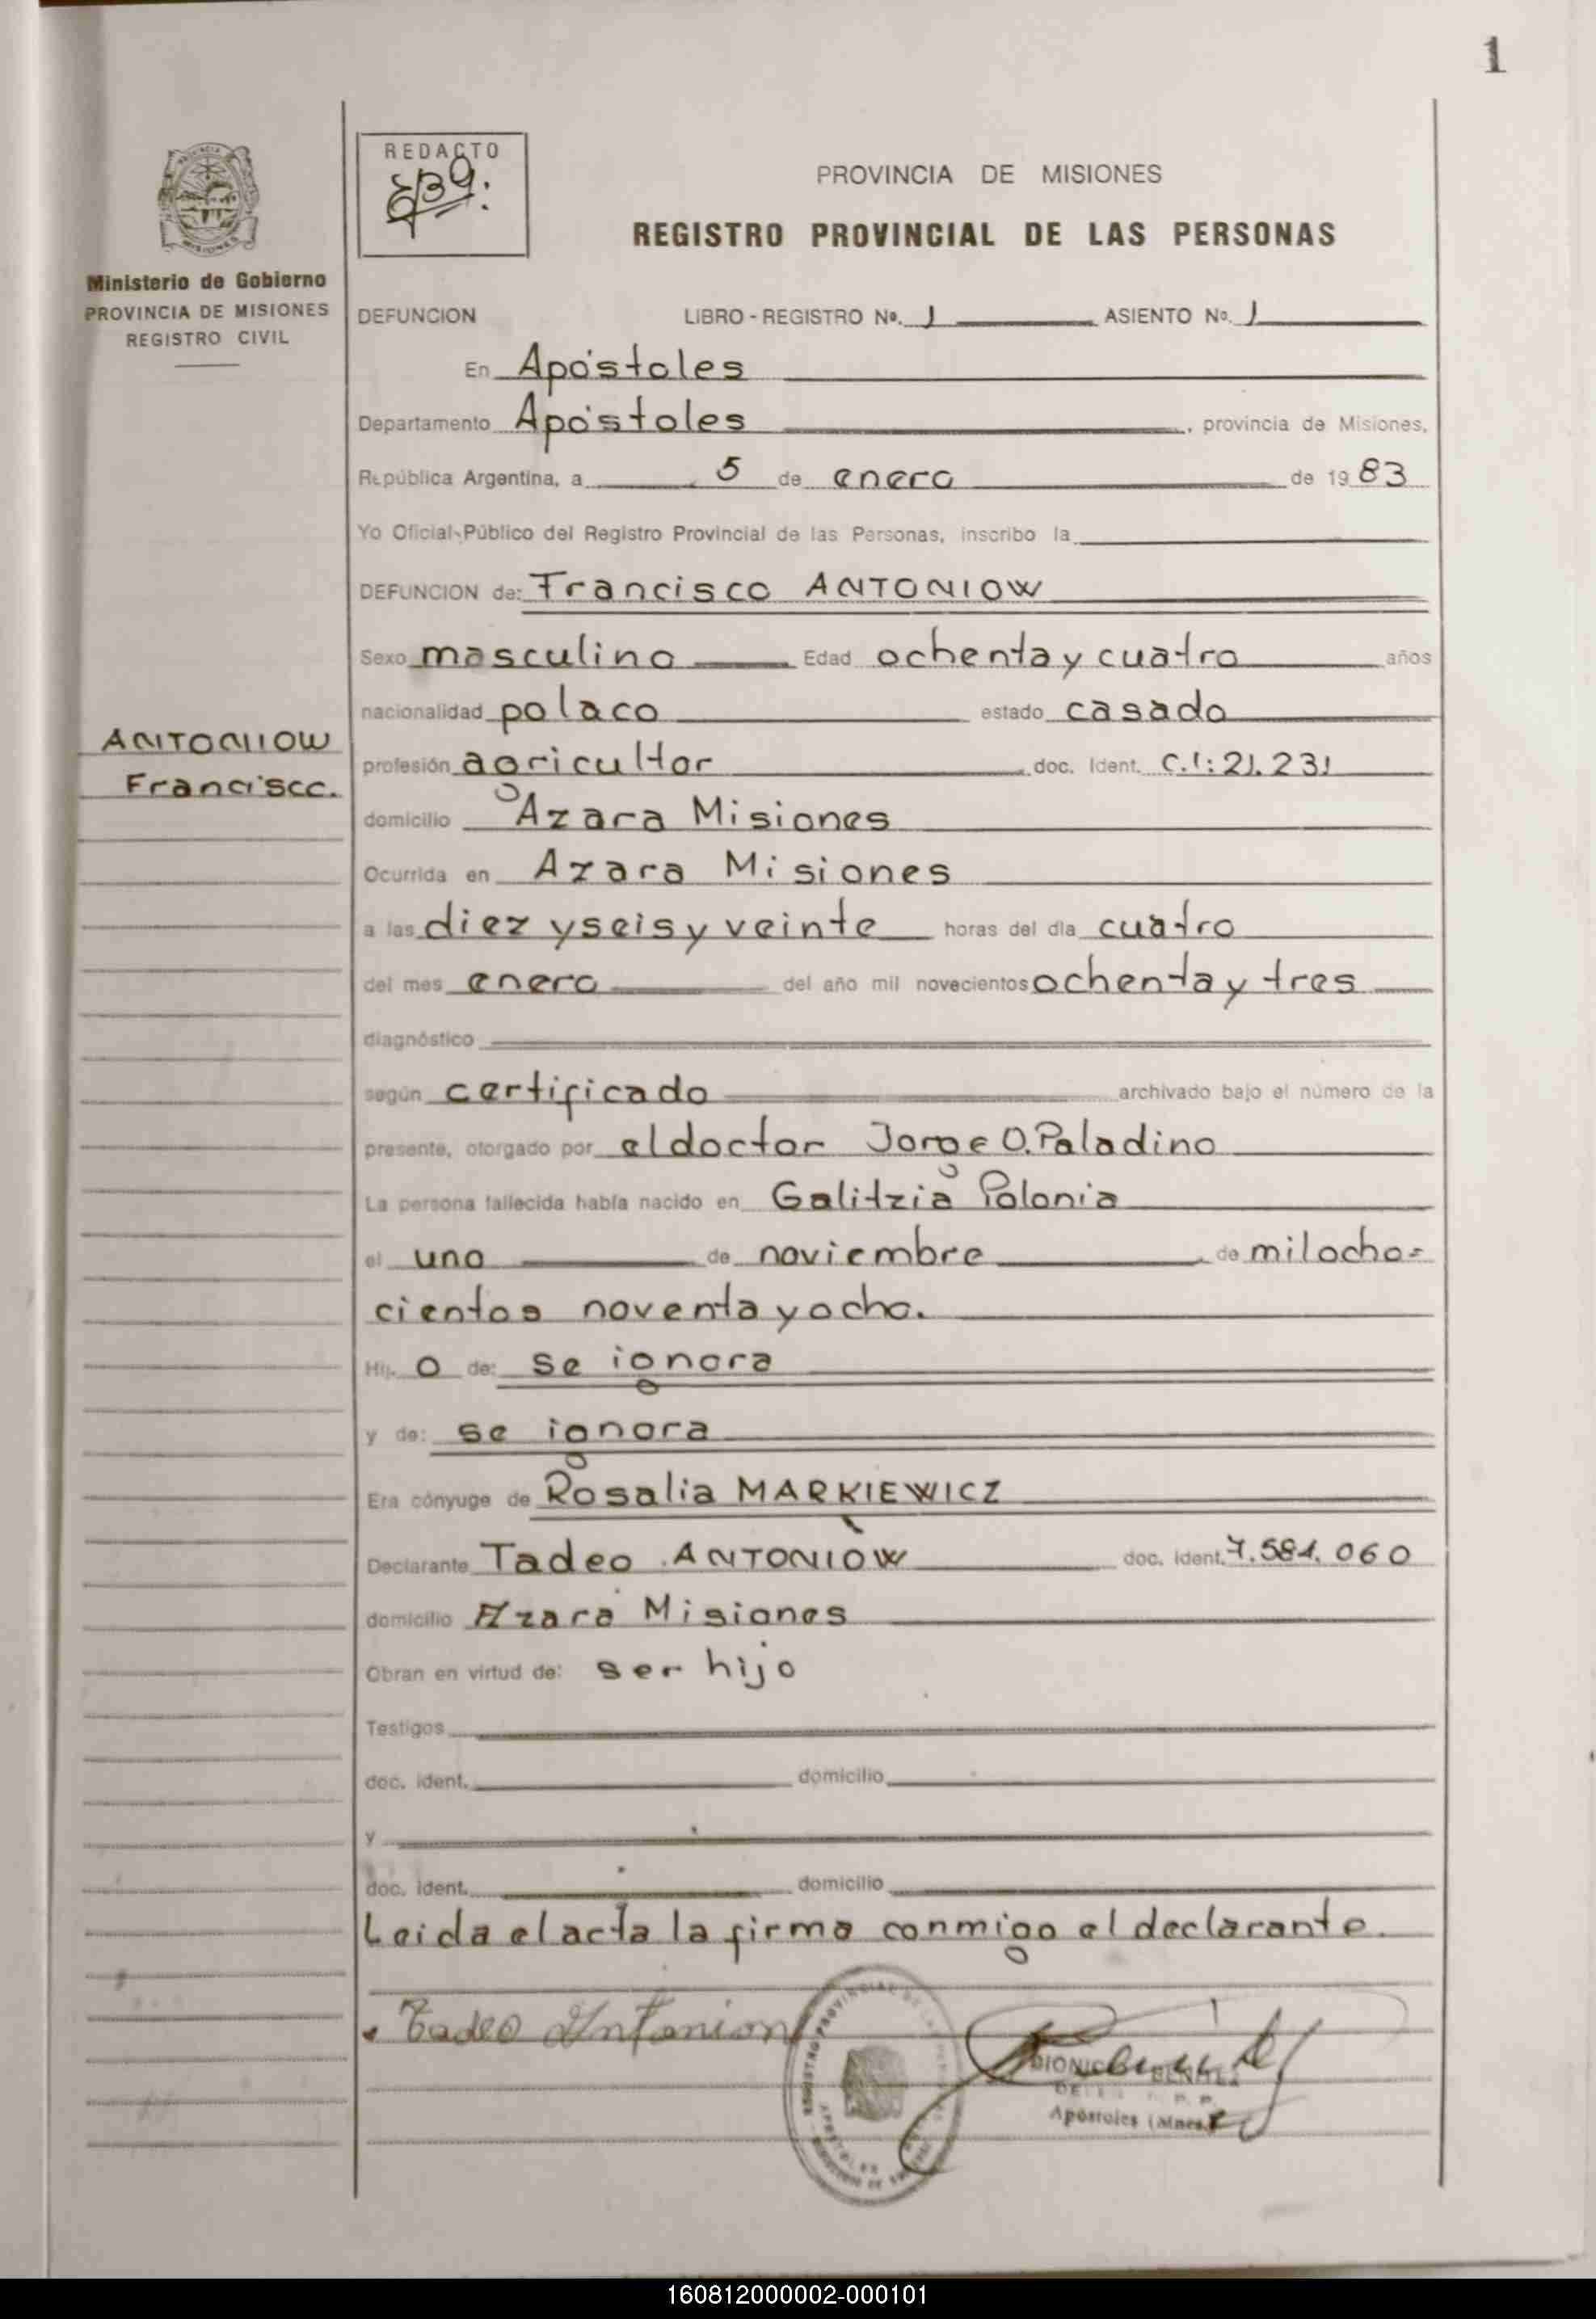 1
REDACTO
PROVINCIA DE MISIONES
REGISTRO PROVINCIAL DE LAS PERSONAS
Ministerio de Gobierno
PROVINCIA DE MISIONES
REGISTRO CIVIL
DEFUNCION LIBRO - REGISTRO Nº. 1 ASIENTO No. 1
En Apóstoles
Departamento Apóstoles, provincia de Misiones,
República Argentina, a 5 de enero de 1983
Yo Oficial Público del Registro Provincial de las Personas, inscribo la
DEFUNCION de: Francisco ANTONIOW
Sexo masculino Edad ochenta y cuatro años
nacionalidad polaco estado casado
ANTONIOW
Francisco.
profesión agricultor doc. Ident. C.I: 21.231
domicilio Azara Misiones
Ocurrida en Azara Misiones
a las diez y seis y veinte horas del día cuatro
del mes enero del año mil novecientos ochenta y tres
diagnóstico
según certificado archivado bajo el número de la
presente, otorgado por el doctor Jorge O. Paladino
La persona fallecida había nacido en Galitzia Polonia
el uno de noviembre de mil ocho=
cientos noventa y ocho.
Hij. o de: se ignora
y de: se ignora
Era cónyuge de Rosalia MARKIEWICZ
Declarante Tadeo ANTONIOW doc. ident. 7.584.060
domicilio Azara Misiones
Obran en virtud de: ser hijo
Testigos
doc. ident. domicilio
y
doc. ident. domicilio
Leida el acta la firma conmigo el declarante.
Tadeo Antoniow
REGISTRO PROVINCIAL DE LAS
BENITEZ
Apóstoles (Mnes.)
160812000002-000101